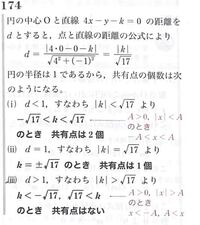 174
円の中心Oと直線 4x-y-k=0 の距離を
dとすると，点と直線の距離の公式により
d=|4・0-0-k|/√(4²+(-1)²)=|k|/√17
円の半径は1であるから，共有点の個数は次
のようになる。
(i) d<1，すなわち |k|<√17 より
-√17<k<√17
A>0，|x|<A
のとき 共有点は2個
のとき
-A<x<A
(ii) d=1，すなわち |k|=√17 より
k=±√17 のとき 共有点は1個
(iii) d>1，すなわち |k|>√17 より
k<-√17，√17<k
A>0，|x|>A
のとき
のとき 共有点はない
x<-A，A<x